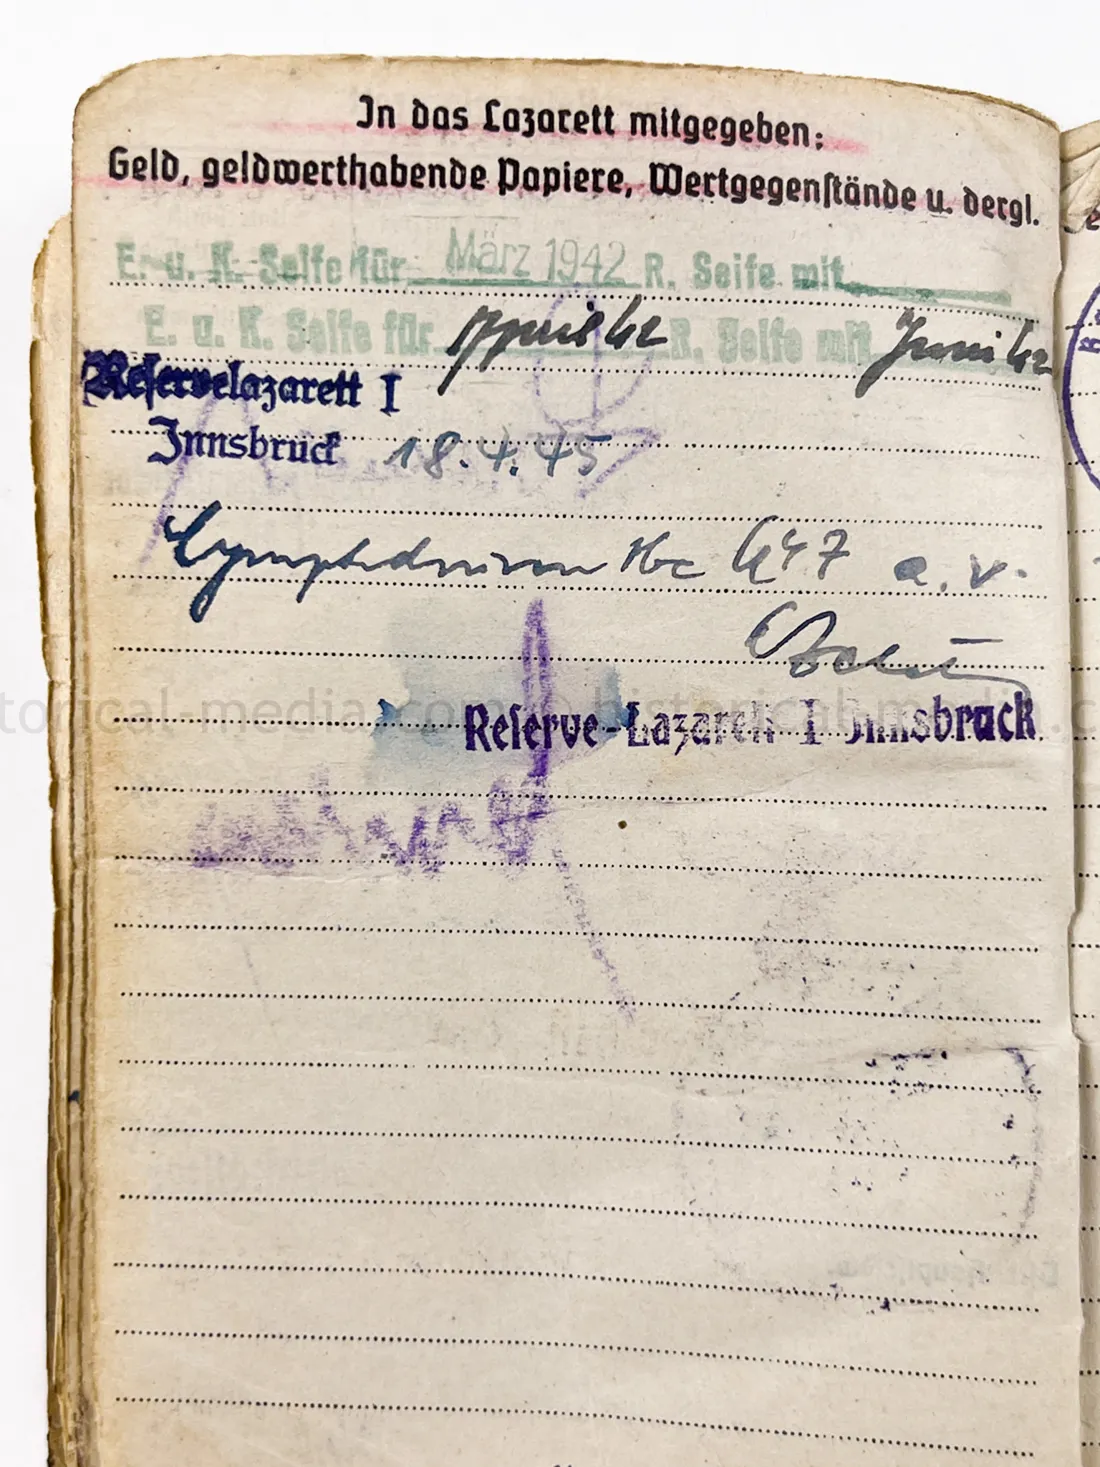 In das Lazarett mitgegeben:
Geld, geldwerthabende Papiere, Wertgegenstände u. dergl.
E. u. K. Seife für März 1942 R. Seife mit
E. u. K. Seife für April 42 R. Seife mit Juni 42
Reservelazarett I
Innsbruck 18.4.45
a. v.
Reserve-Lazarett I Innsbruck